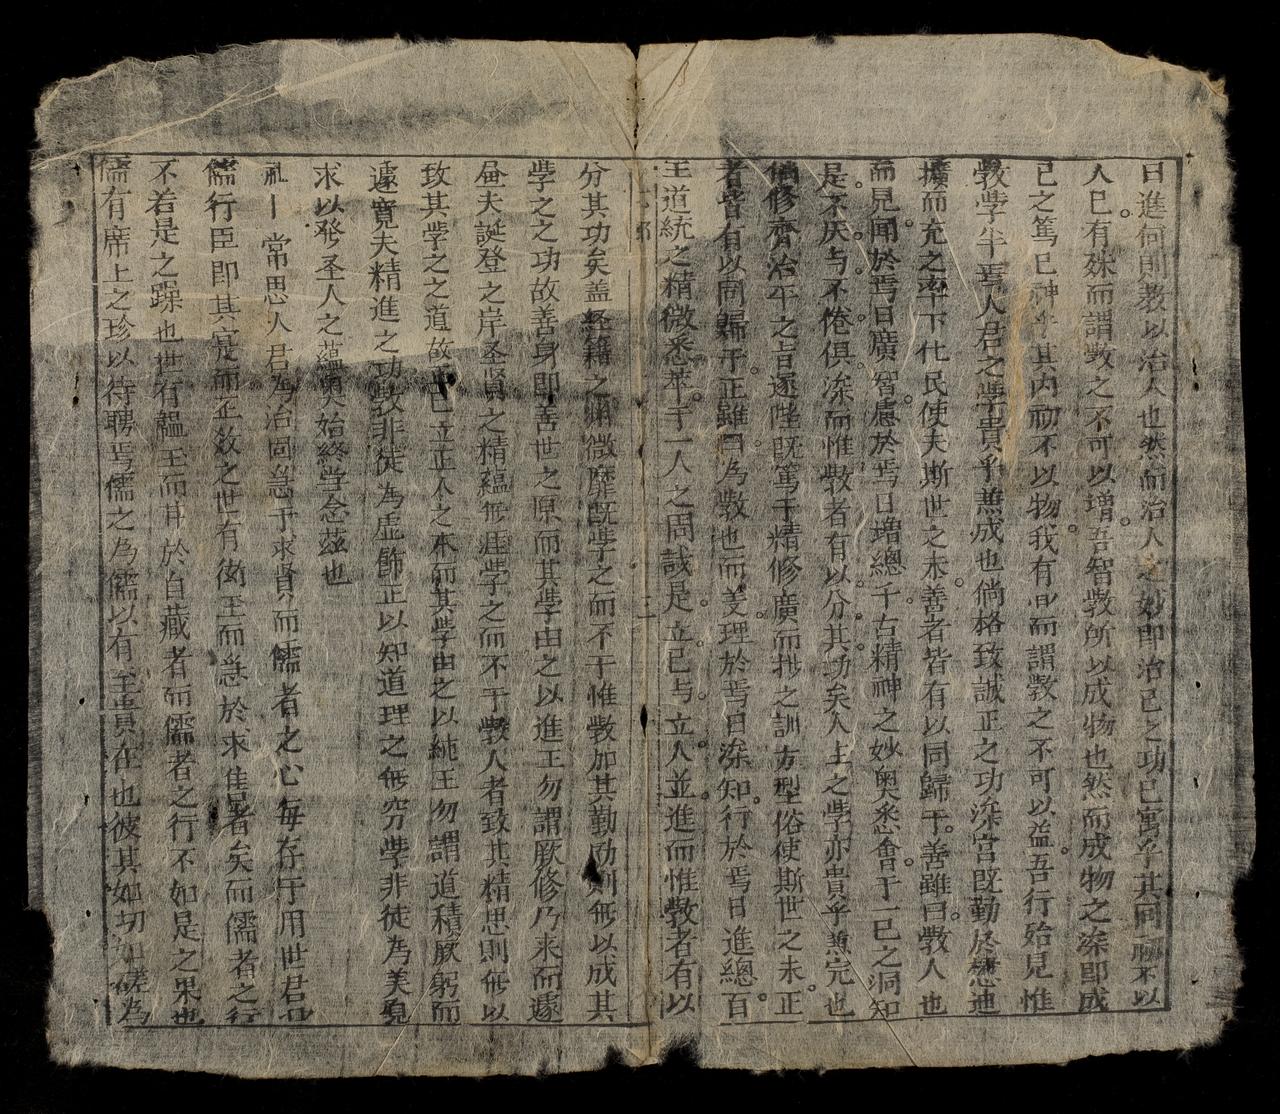 日進何則教以治人也然而治人之妙即治己之功已寓乎其間初不以
人己有殊而謂斅之不可以增吾智斅所以成物也然而成物之深即成
己之篤已神乎其内初不以物我有間而謂斅之不可以益吾行殆見惟
斅學半焉人君之學貴乎兼成也倘格致誠正之功深宮既勤於懋迪
擴而充之率下化民使夫斯世之未善者皆有以同歸于善雖曰斅人也
而見聞於焉日廣智慮於焉日增總千古精神之妙奥悉會于一己之洞知
是不厌与不倦俱深而惟斅者有以分其功矣人上之學亦貴乎兼完也
修齊治平之旨遂陛既篤于精修廣而抄之訓方型俗使斯世之未正
者皆有以同歸于正雖曰為斅也而義理於焉日深知行於焉日進總百
王道統之精微悉萃于一人之周誠是立己与立人並進而惟斅者有以
三
分其功矣盖经籍之渊微靡既學之而不于惟斅加其勤劬則無以成其
學之之功故善身即善世之原而其學由之以進王勿謂厥修乃来而遽
夫誕登之岸圣賢之精蘊無涯學之而不于斅人者致其精思則無以
致其學之之道故正己立正人之本而其學由之以純王勿謂道積厥躬而
遽寛夫精進之功斅非徒為虚飾正以知道理之無穷學非徒為美覌
求以發圣人之蘊奥始終学念茲也
常思人君為治固急于求賢而儒者之心每存于用世君
儒行臣即其寔而正效之世有衒玉而急於求售者矣而儒者之行
不若是之躁也世有韞玉而甘於自藏者而儒者之行不如是之果也
儒有席上之珍以待聘焉儒之為儒以有至貴在也彼其如切如磋為